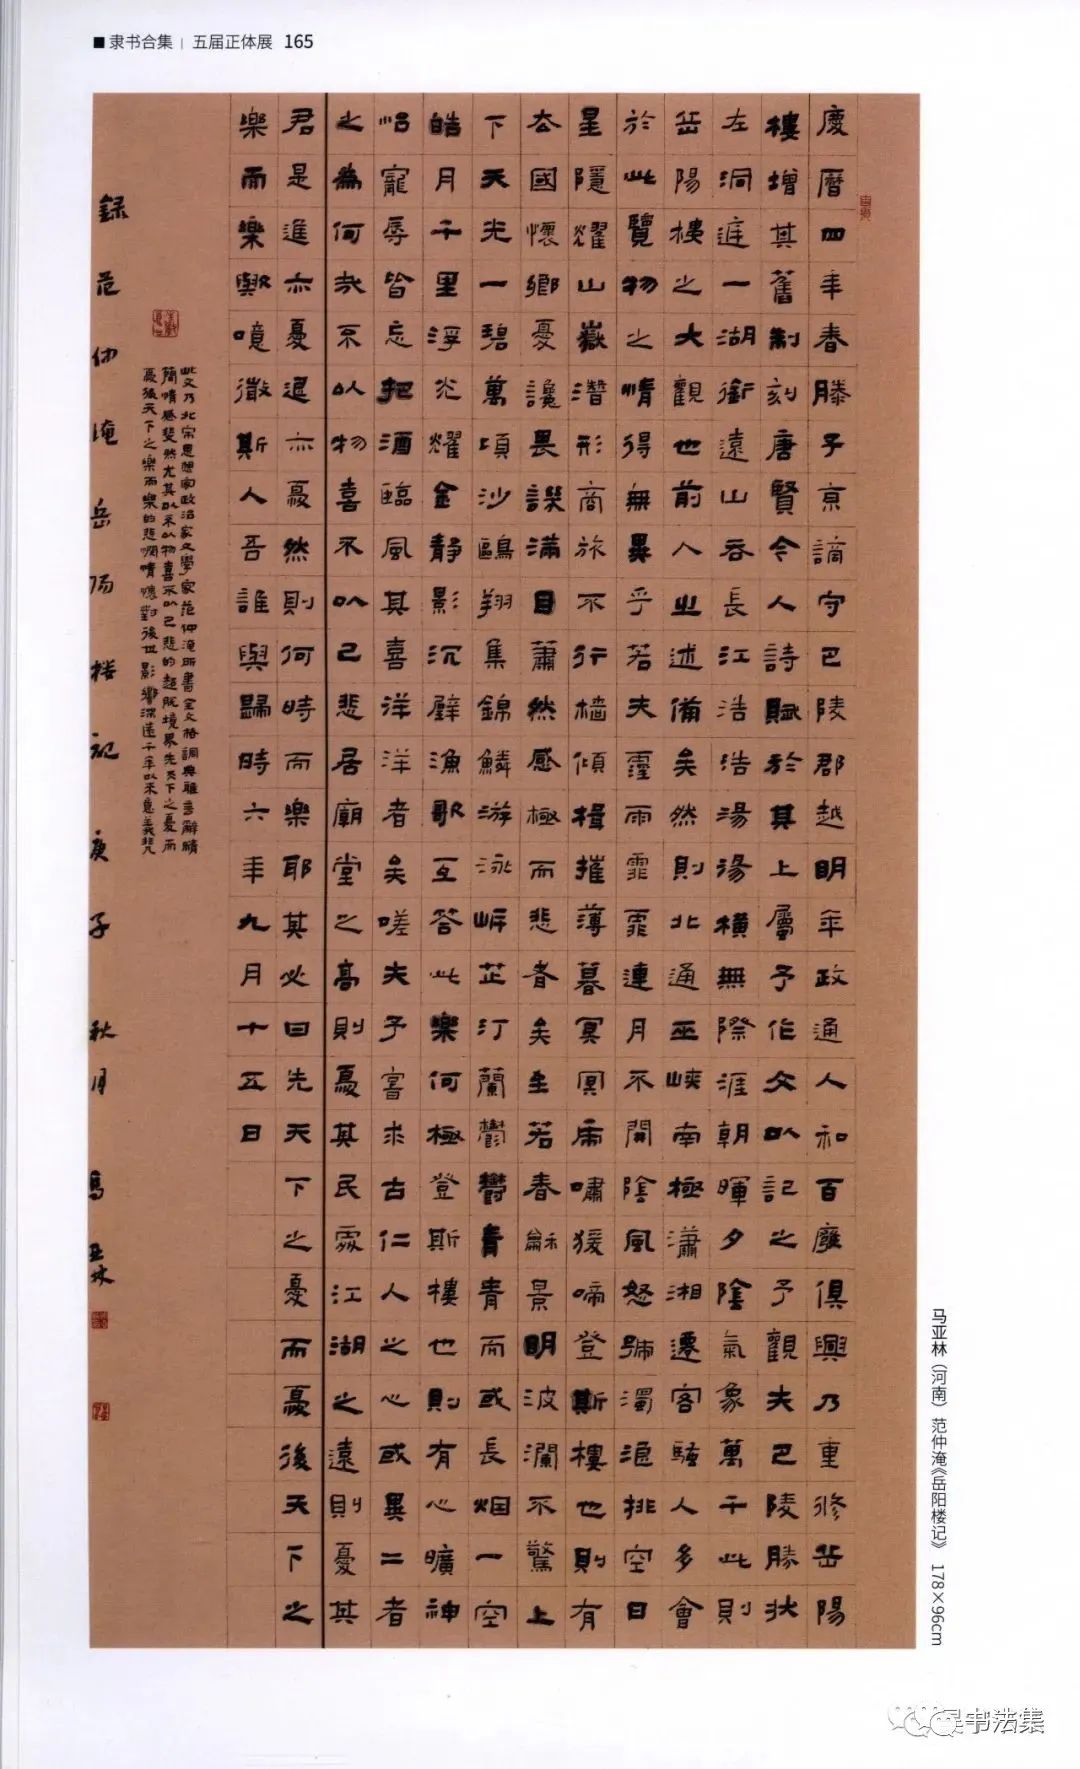 隶书合集 | 五届正体展 165
慶曆四年春滕子京謫守巴陵郡越明年政通人和百廢俱興乃重修岳陽
樓增其舊制刻唐賢今人詩賦於其上屬予作文以記之予觀夫巴陵勝狀
左洞庭一湖銜遠山吞長江浩浩湯湯橫無際涯朝暉夕陰氣象萬千此則
岳陽樓之大觀也前人之述備矣然則北通巫峽南極瀟湘遷客騷人多會
於此覽物之情得無異乎若夫霪雨霏霏連月不開陰風怒號濁浪排空日
星隱耀山嶽潛形商旅不行檣傾楫摧薄暮冥冥虎嘯猿啼登斯樓也則有
去國懷鄉憂讒畏譏滿目蕭然感極而悲者矣至若春龢景明波瀾不驚上
下天光一碧萬頃沙鷗翔集錦鱗游泳岸芷汀蘭鬱鬱青青而或長烟一空
皓月千里浮光耀金靜影沉璧漁歌互答此樂何極登斯樓也則有心曠神
怡寵辱皆忘把酒臨風其喜洋洋者矣嗟夫予嘗求古仁人之心或異二者
之為何哉不以物喜不以己悲居廟堂之高則憂其民處江湖之遠則憂其
君是進亦憂退亦憂然則何時而樂耶其必曰先天下之憂而憂後天下之
樂而樂歟噫微斯人吾誰與歸時六年九月十五日
此文乃北宋思想家政治家文學家范仲淹所書全文格調典雅言辭精
簡情感斐然尤其以不以物喜不以己悲的超脫境界先天下之憂而
憂後天下之樂而樂的悲憫情懷對後世影響深遠千年以來意義非凡
錄范仲淹岳陽樓記庚子秋月馬亞林
马亚林（河南） 范仲淹《岳阳楼记》 178×96cm
书法集